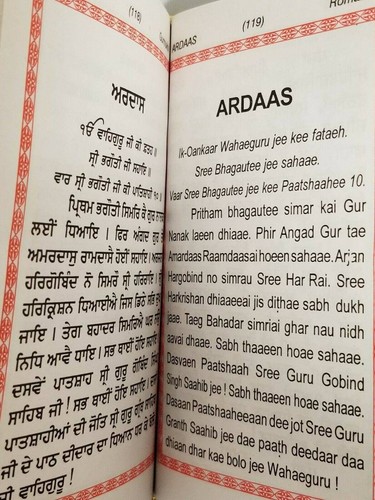 (118)
ਅਰਦਾਸ
ੴ ਵਾਹਿਗੁਰੂ ਜੀ ਕੀ ਫ਼ਤਹ ॥
ਸ੍ਰੀ ਭਗੌਤੀ ਜੀ ਸਹਾਇ ॥
ਵਾਰ ਸ੍ਰੀ ਭਗੌਤੀ ਜੀ ਕੀ ਪਾਤਿਸ਼ਾਹੀ ੧੦ ॥
ਪ੍ਰਿਥਮ ਭਗੌਤੀ ਸਿਮਰਿ ਕੈ ਗੁਰ ਨਾਨਕ
ਲਈਂ ਧਿਆਇ । ਫਿਰ ਅੰਗਦ ਗੁਰ ਤੇ
ਅਮਰਦਾਸੁ ਰਾਮਦਾਸੈ ਹੋਈਂ ਸਹਾਇ ।
ਹਰਿਗੋਬਿੰਦ ਨੋ ਸਿਮਰੌ ਸ੍ਰੀ ਹਰਿਰਾਇ ।
ਹਰਿਕ੍ਰਿਸ਼ਨ ਧਿਆਈਐ ਜਿਸ ਡਿਠੇ ਸਭਿ
ਜਾਇ । ਤੇਗ ਬਹਾਦਰ ਸਿਮਰਿਐ ਘਰ ਨਉ
ਨਿਧਿ ਆਵੈ ਧਾਇ । ਸਭ ਥਾਈਂ ਹੋਇ ਸਹਾਇ ।
ਦਸਵੇਂ ਪਾਤਸ਼ਾਹ ਸ੍ਰੀ ਗੁਰੂ ਗੋਬਿੰਦ ਸਿੰਘ
ਸਾਹਿਬ ਜੀ ! ਸਭ ਥਾਈਂ ਹੋਇ ਸਹਾਇ ।
ਪਾਤਸ਼ਾਹੀਆਂ ਦੀ ਜੋਤਿ ਸ੍ਰੀ ਗੁਰੂ ਗ੍ਰੰਥ
ਜੀ ਦੇ ਪਾਠ ਦੀਦਾਰ ਦਾ ਧਿਆਨ ਧਰ ਕੇ ਬੋਲੋ
ਵਾਹਿਗੁਰੂ !
ARDAAS
(119)
ARDAAS
Ik-Oankaar Wahaeguru jee kee fataeh.
Sree Bhagautee jee sahaae.
Vaar Sree Bhagautee jee kee Paatshaahee 10.
Pritham bhagautee simar kai Gur
Nanak laeen dhiaae. Phir Angad Gur tae
Amardaas Raamdaasai hoeen sahaae. Arjan
Hargobind no simrau Sree Har Rai. Sree
Harkrishan dhiaaeeai jis dithae sabh dukh
jaae. Taeg Bahadar simriai ghar nau nidh
aavai dhaae. Sabh thaaeen hoae sahaae.
Dasvaen Paatshaah Sree Guru Gobind
Singh Saahib jee ! Sabh thaaeen hoae sahaae.
Dasaan Paatshaaheeaan dee jot Sree Guru
Granth Saahib jee dae paath deedaar daa
dhiaan dhar kae bolo jee Wahaeguru !